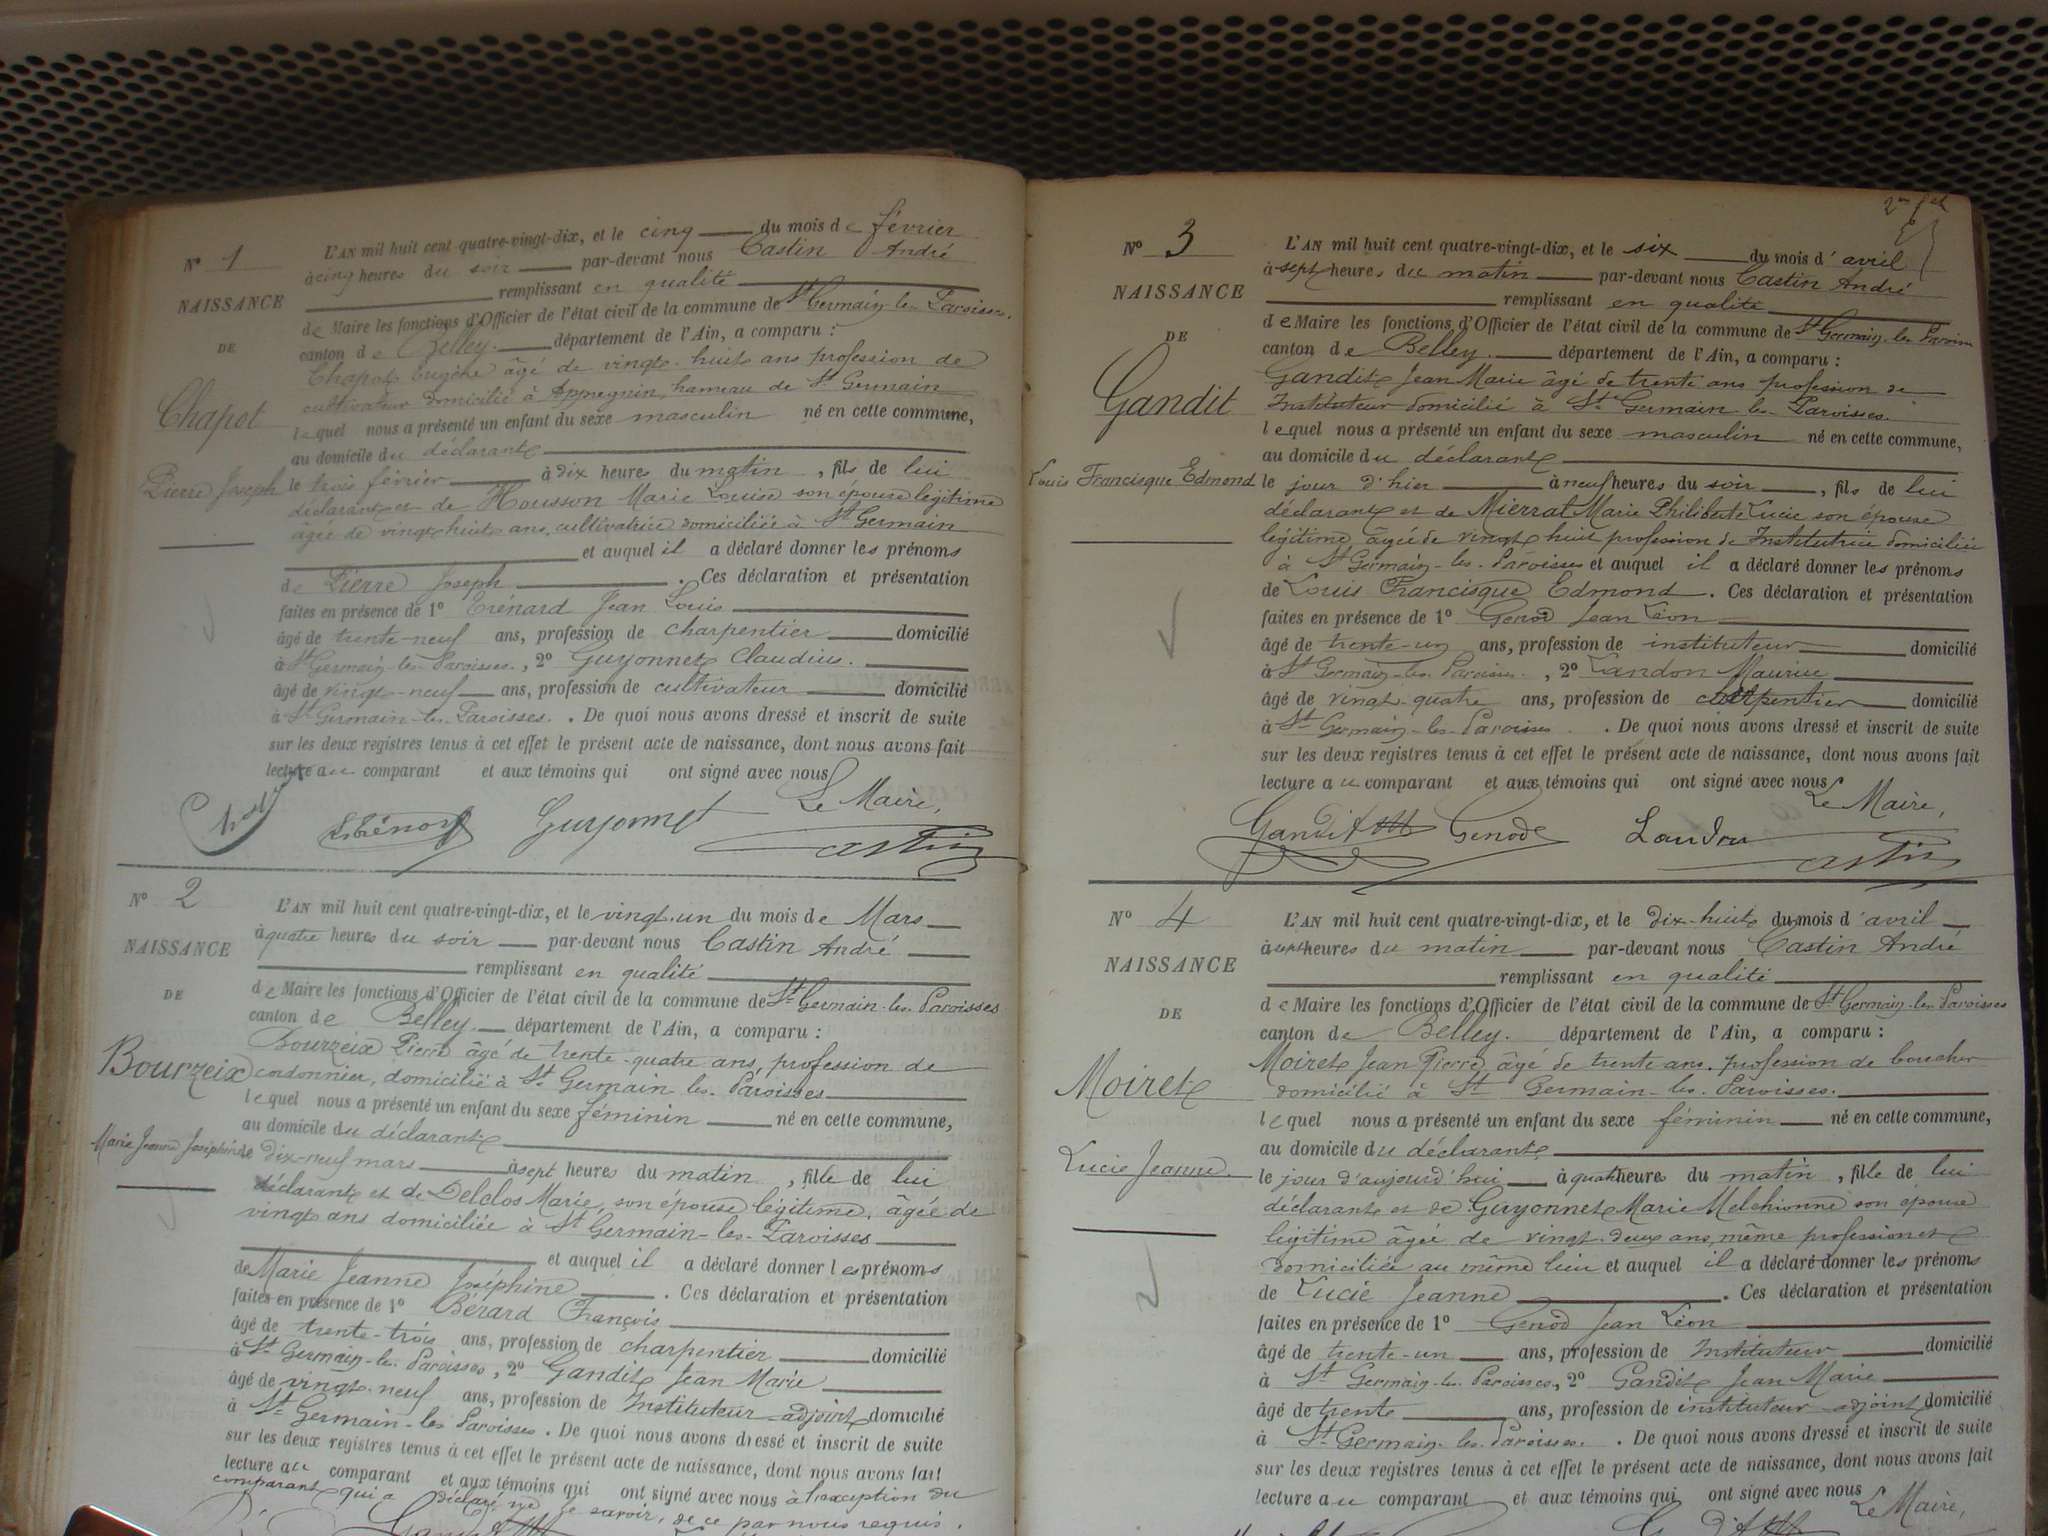 N° 1
NAISSANCE
DE
Chapot
Pierre Joseph
L'AN mil huit cent quatre-vingt-dix, et le cinq du mois de février
à cinq heures du soir par-devant nous Castin André
remplissant en qualité
de Maire les fonctions d'Officier de l'état civil de la commune de St Germain-les-Paroisses,
canton de Belley. département de l'Ain, a comparu :
Chapot Eugène âgé de vingt-huit ans profession de
cultivateur domicilié à Appregnin, hameau de St Germain
lequel nous a présenté un enfant du sexe masculin né en cette commune,
au domicile du déclarant
le trois février à dix heures du matin, fils de lui
déclarant et de Housson Marie Louise son épouse légitime
âgée de vingt huit ans, cultivatrice domiciliée à St Germain
et auquel il a déclaré donner les prénoms
de Pierre Joseph. Ces déclaration et présentation
faites en présence de 1° Trénard Jean Louis
âgé de trente-neuf ans, profession de charpentier domicilié
à St Germain-les-Paroisses., 2° Guyonnet Claudius.
âgé de vingt-neuf ans, profession de cultivateur domicilié
à St Germain-les-Paroisses. . De quoi nous avons dressé et inscrit de suite
sur les deux registres tenus à cet effet le présent acte de naissance, dont nous avons fait
lecture au comparant et aux témoins qui ont signé avec nous
Le Maire,
Guyonnet Castin
N° 2
NAISSANCE
DE
Bourzeix
Marie Jeanne Joséphine
L'AN mil huit cent quatre-vingt-dix, et le vingt-un du mois de Mars
à quatre heures du soir par-devant nous Castin André
remplissant en qualité
de Maire les fonctions d'Officier de l'état civil de la commune de St Germain-les-Paroisses
canton de Belley. département de l'Ain, a comparu :
Bourzeix Pierre âgé de trente-quatre ans, profession de
cordonnier, domicilié à St Germain les-Paroisses
lequel nous a présenté un enfant du sexe féminin né en cette commune,
au domicile du déclarant
le dix-neuf mars à sept heures du matin, fille de lui
déclarant et de Delclos Marie, son épouse légitime, âgée de
vingt ans domiciliée à St Germain-les-Paroisses
et auquel il a déclaré donner les prénoms
de Marie Jeanne Joséphine. Ces déclaration et présentation
faites en présence de 1° Bérard François
âgé de trente-trois ans, profession de charpentier domicilié
à St Germain-les-Paroisses, 2° Gandit Jean Marie
âgé de vingt-neuf ans, profession de Instituteur-adjoint domicilié
à St Germain-les-Paroisses. De quoi nous avons dressé et inscrit de suite
sur les deux registres tenus à cet effet le présent acte de naissance, dont nous avons fait
lecture au comparant et aux témoins qui ont signé avec nous à l'exception du
comparant qui a déclaré ne le savoir, de ce par nous requis.
N° 3
NAISSANCE
DE
Gandit
Louis Francisque Edmond
L'AN mil huit cent quatre-vingt-dix, et le six du mois d'avril
à sept heures du matin par-devant nous Castin André
remplissant en qualité
de Maire les fonctions d'Officier de l'état civil de la commune de St Germain-les-Paroisses
canton de Belley. département de l'Ain, a comparu :
Gandit Jean Marie âgé de trente ans profession de
Instituteur domicilié à St Germain les-Paroisses.
lequel nous a présenté un enfant du sexe masculin né en cette commune,
au domicile du déclarant
le jour d'hier à neuf heures du soir, fils de lui
déclarant et de Mierral Marie Philiberte Lucie son épouse
légitime âgée de vingt huit profession de Institutrice domiciliée
à St Germain-les-Paroisses et auquel il a déclaré donner les prénoms
de Louis Francisque Edmond. Ces déclaration et présentation
faites en présence de 1° Genod Jean Léon
âgé de trente-un ans, profession de instituteur domicilié
à St Germain-les-Paroisses., 2° Landon Maurice
âgé de vingt-quatre ans, profession de charpentier domicilié
à St Germain-les-Paroisses. De quoi nous avons dressé et inscrit de suite
sur les deux registres tenus à cet effet le présent acte de naissance, dont nous avons fait
lecture au comparant et aux témoins qui ont signé avec nous
Le Maire,
Gandit Genod Landon Castin
N° 4
NAISSANCE
DE
Moiret
Lucie Jeanne
L'AN mil huit cent quatre-vingt-dix, et le dix-huit du mois d'avril
à sept heures du matin par-devant nous Castin André
remplissant en qualité
de Maire les fonctions d'Officier de l'état civil de la commune de St Germain-les-Paroisses
canton de Belley. département de l'Ain, a comparu :
Moiret Jean Pierre, âgé de trente ans, profession de boucher
domicilié à St Germain-les-Paroisses.
lequel nous a présenté un enfant du sexe féminin né en cette commune,
au domicile du déclarant
le jour d'aujourd'hui à quatre heures du matin, fille de lui
déclarant et de Guyonnet Marie Melchionne son épouse
légitime âgée de vingt-deux ans, même profession et
domiciliée au même lieu et auquel il a déclaré donner les prénoms
de Lucie Jeanne. Ces déclaration et présentation
faites en présence de 1° Genod Jean Léon
âgé de trente-un ans, profession de Instituteur domicilié
à St Germain-les-Paroisses, 2° Gandit Jean Marie
âgé de trente ans, profession de instituteur-adjoint domicilié
à St Germain-les-Paroisses. . De quoi nous avons dressé et inscrit de suite
sur les deux registres tenus à cet effet le présent acte de naissance, dont nous avons fait
lecture au comparant et aux témoins qui ont signé avec nous
Le Maire,